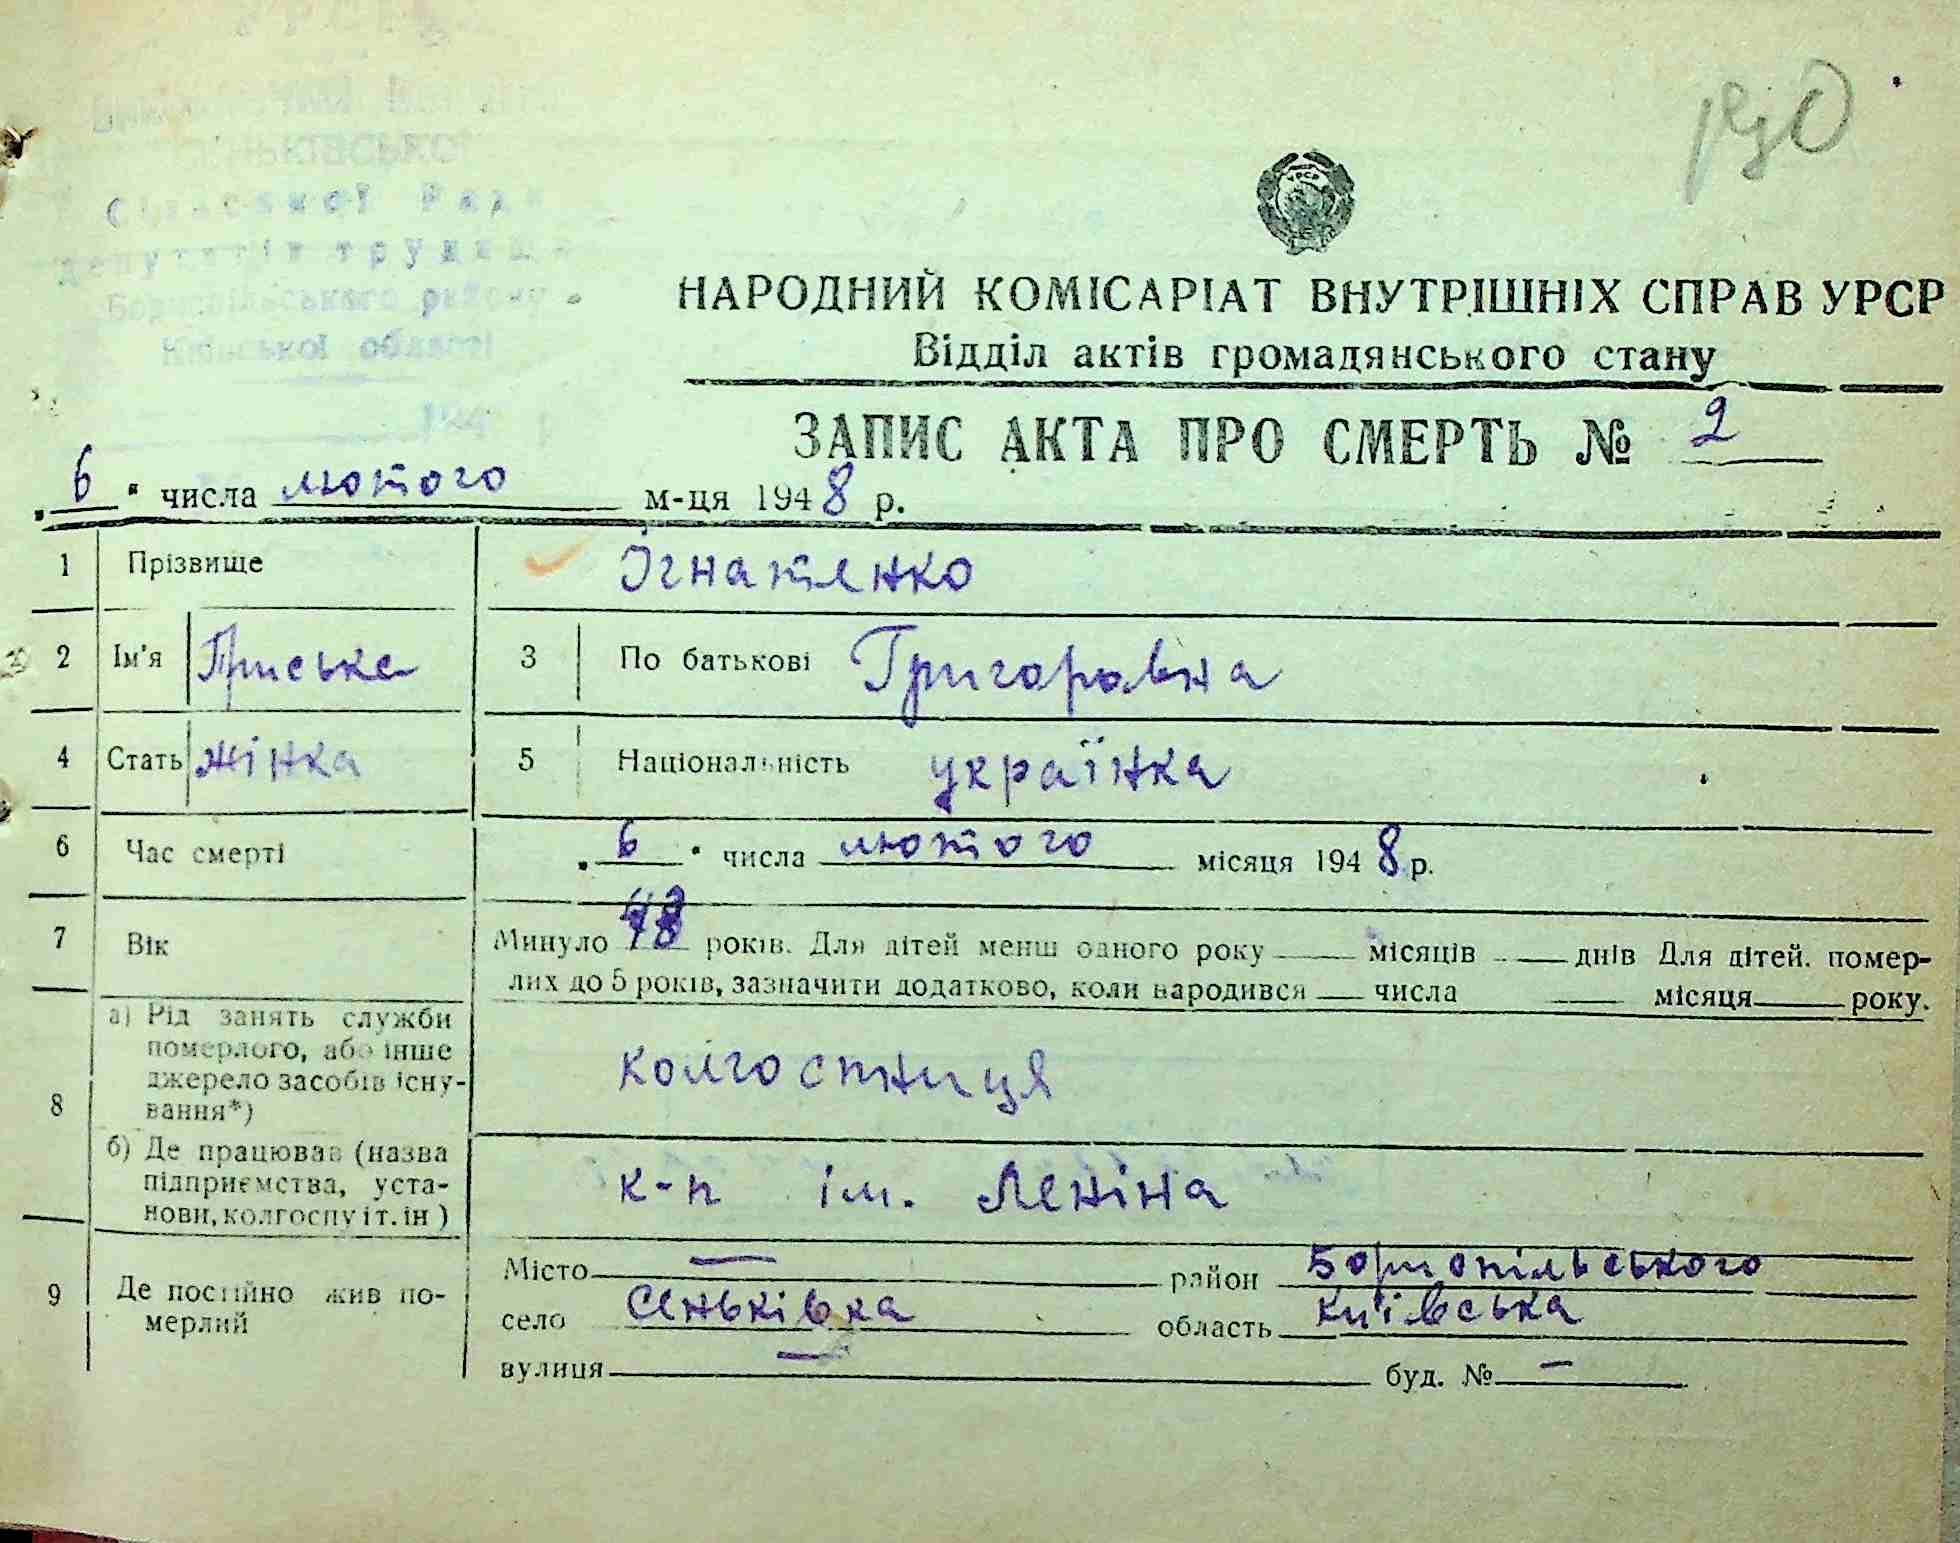 УРСР
СЕНЬКІВСЬКОЇ
Сільської Ради
депутатів трудящ
Бориспільського району
Київської області
194 р
НАРОДНИЙ КОМІСАРІАТ ВНУТРІШНІХ СПРАВ УРСР
Відділ актів громадянського стану
ЗАПИС АКТА ПРО СМЕРТЬ № 2
"6" числа лютого м-ця 1948 р.
1 Прізвище Ігнатенко
2 Ім'я Приська 3 По батькові Григоровна
4 Стать жінка 5 Національність українка
6 Час смерті "6" числа лютого місяця 1948 р.
7 Вік Минуло років. Для дітей менш одного року місяців днів Для дітей. помер-
лих до 5 років, зазначити додатково, коли народився числа місяця року.
8 а) Рід занять служби
померлого, або інше
джерело засобів існу-
вання*)
колгоспниця
б) Де працював (назва
підприємства, уста-
нови, колгоспу і т. ін)
к-п ім. Леніна
9 Де постійно жив по-
мерлий
Місто — район Бориспільського
село Сеньківка область київська
вулиця — буд. № —